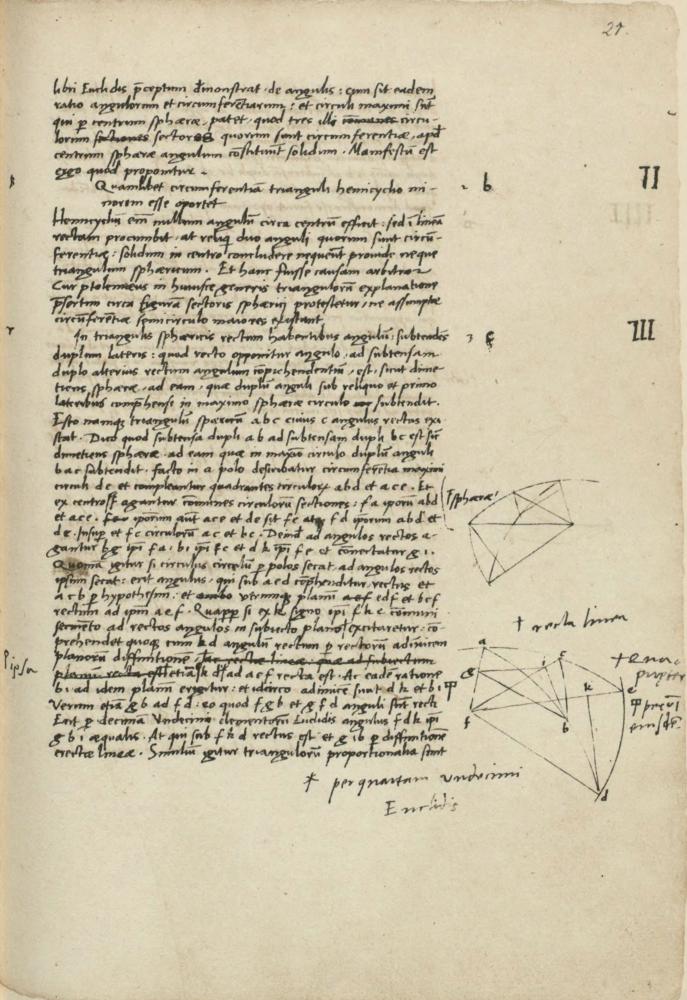 27.
libri Euclidis p̄ceptum dm̄onstrat de angulis: cum sit eadem
ratio angulorum et circumferentiarum: et circuli maximi sūt
qui p̱ centrum sphæræ. patet. quod tres illi circu-
lorum sectores quorum sunt circumferentiæ, apd̄
centrum sphæræ angulum cōstituūt solidum. Manifestū est
ergo quod proponitur.
Quamlibet circumferentiam trianguli hemicyclo mi-
norem esse oportet
b
II
Hemicyclus em̄ nullum angulū circa centrū efficit: sed ī lineā
rectam procumbit. at reliq̄ duo anguli quorum sunt circū-
ferentiæ: solidum in centro concludere nequeūt proinde neque
triangulum sphæricum. Et hanc fuisse causam arbitror
Cur ptolemæus in huiusce generis triangulorū explanatione
p̄sertim circa figurā sectoris sphærici protestetur, ne assumptæ
circūferentiæ semicirculo maiores existant.
In triangulis sphæricis rectum habentibus angulū: subtendēs
c
III
duplum lateris: quod recto opponitur angulo, ad subtensam
duplo alterius rectum angulum cōprehendentiū, est, sicut dime-
tiens sphæræ, ad eam, quæ duplū anguli sub reliquo et primo
lateribus comp̄hensi in maximo sphæræ circulo subtendit.
Esto namq̄ triangulū sphæricū a b c cuius c angulus rectus exi
stat. Dico quod subtensa dupli a b ad subtensam dupli b c est sicut
dimetiens sphæræ ad eam quæ in maxīo circulo duplū anguli
b a c subtendit. facto in a polo describatur circumferētia maximi
circuli d e et compleantur quadrantes circulorū a b d et a c e. Et
ex centro f agantur cōmunes circulorū sectiones: f a ipsorū abd
sphæræ
et a c e. ipsorum aūt a c e et d e sit f e atq̄ f d ipsorum a b d et
d e. Insup̱ et f c circulorū a c et b c. Deind̄ ad angulos rectos a-
gantur b g ipi f a. b i ipi f c et d k ipi f e et conectatur g i.
Quoniā igitur si circulus circulū p̱ polos secat, ad angulos rectos
ipsum secat: erit angulus, qui sub a e d cōp̄henditur, rectus et
a c b p̱ hypothesim: et utrumq̄ planū edf et bcf
rectum ad ipm a e f. Quap̱p̱ si ex k signo ipi f k e comuni
segmēto ad rectos angulos in subiecto plano excitaretur: co-
† recta linea
prehendet quoq̄ cum k d angulū rectum p̱ rectorū adinuicem
planorū diffinitionē
ipsa
etiā k d ad a e f recta est. Ac eadē ratione
b i ad idem planū erigetur: et idcirco adinuicē sunt d k et b i
Verum etiā g b ad f d. eo quod f g b et g f d anguli sūnt recti
Erit p̱ decimā Undecimæ elementorū Euclidis angulus f d k ipi
g b i æqualis. At qui sub f k d rectus est et g i b p̱ diffinitionē
erectæ lineæ. Similiū igitur triangulorū proportionalia sunt
per quartam undecimi
Euclidis
a
g
f
i
c
k
e
b
d